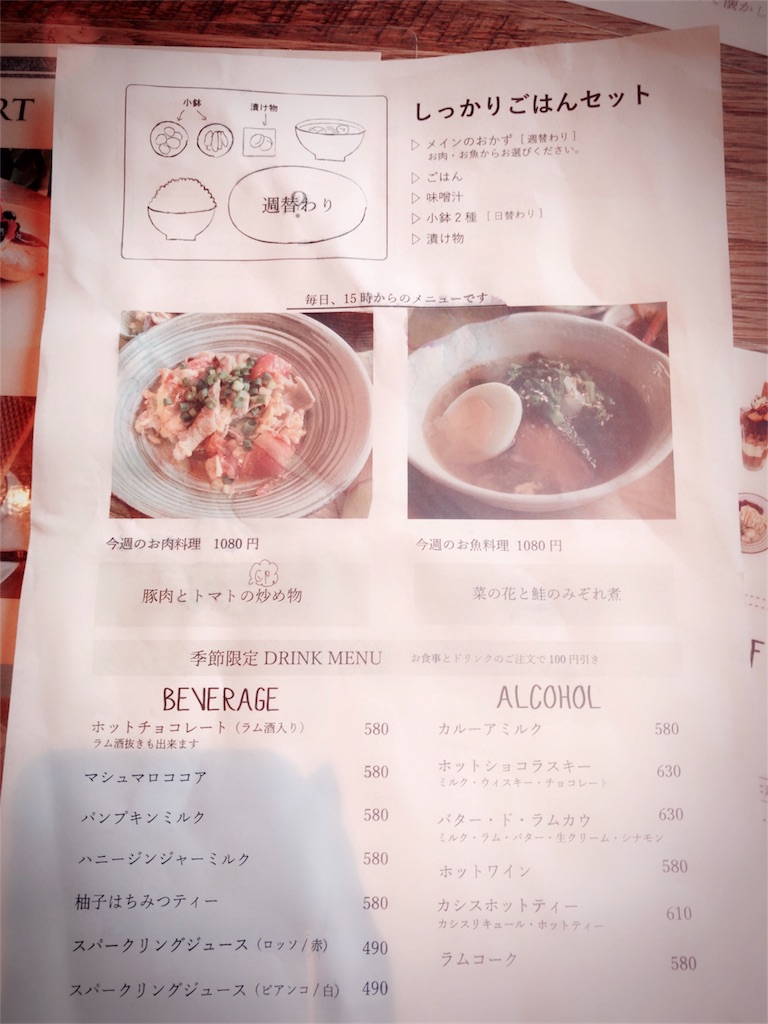 RT
小鉢
漬け物
週替わり
しっかりごはんセット
▷ メインのおかず [週替わり]
お肉・お魚からお選びください。
▷ ごはん
▷ 味噌汁
▷ 小鉢2種 [日替わり]
▷ 漬け物
毎日、15時からのメニューです
今週のお肉料理 1080円
今週のお魚料理 1080円
豚肉とトマトの炒め物
菜の花と鮭のみぞれ煮
季節限定 DRINK MENU
お食事とドリンクのご注文で100円引き
BEVERAGE
ホットチョコレート（ラム酒入り） 580
ラム酒抜きも出来ます
マシュマロココア 580
パンプキンミルク 580
ハニージンジャーミルク 580
柚子はちみつティー 580
スパークリングジュース（ロッソ/赤） 490
スパークリングジュース（ビアンコ/白） 490
ALCOHOL
カルーアミルク 580
ホットショコラスキー 630
ミルク・ウィスキー・チョコレート
バター・ド・ラムカウ 630
ミルク・ラム・バター・生クリーム・シナモン
ホットワイン 580
カシスホットティー 610
カシスリキュール・ホットティー
ラムコーク 580
F